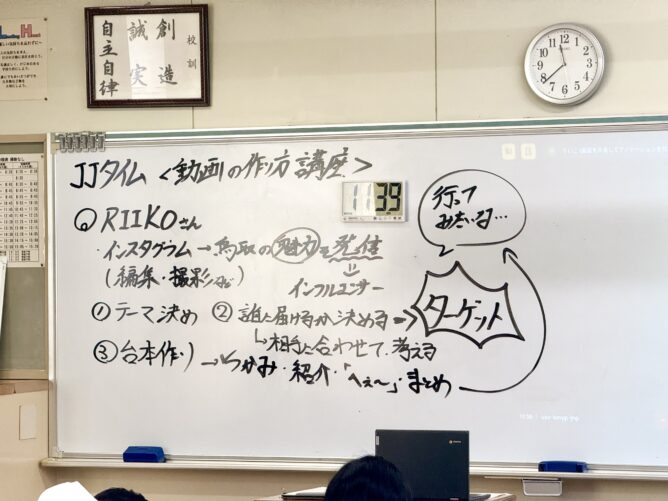 校訓
創造
誠実
自主自律
JJタイム <動画の作り方講座>
11:39
RIIKOさん
・インスタグラム→鳥取の魅力を発信
(編集・撮影など)
インフルエンサー
①テーマ決め ②誰に届けるか決める⇒ターゲット
↳相手に合わせて考える
③台本作り→つかみ・紹介・「へぇ〜」・まとめ
行って
みたいな…